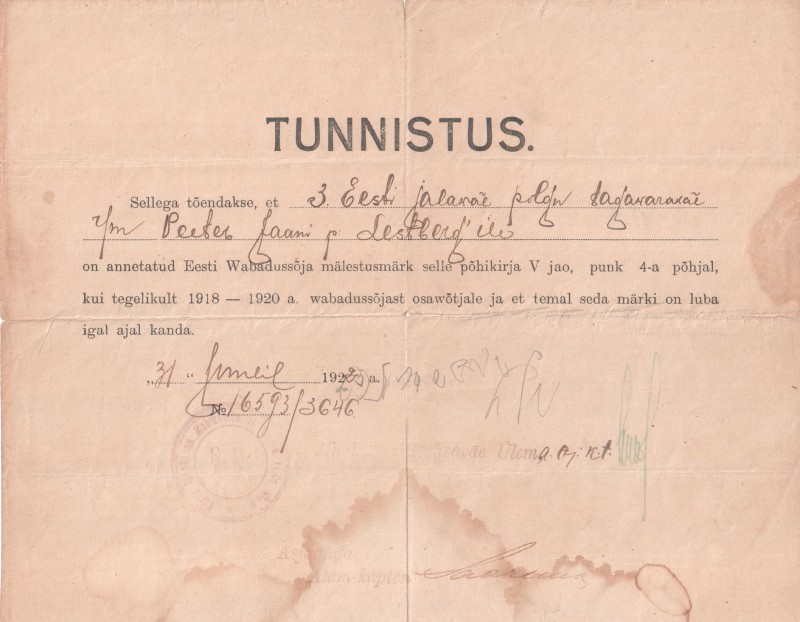 TUNNISTUS.
Sellega tõendakse, et 3. Eesti jalawäe polgu tagawarawäe
r/m Peeter Jaani p. Lestberg'ile
on annetatud Eesti Wabadussõja mälestusmärk selle põhikirja V jao, punk 4-a põhjal,
kui tegelikult 1918 — 1920 a. wabadussõjast osawõtjale ja et temal seda märki on luba
igal ajal kanda.
„31 “ 192 a.
№ 16593/3646
Ülema a. aj. k.t.
Alam-kapten